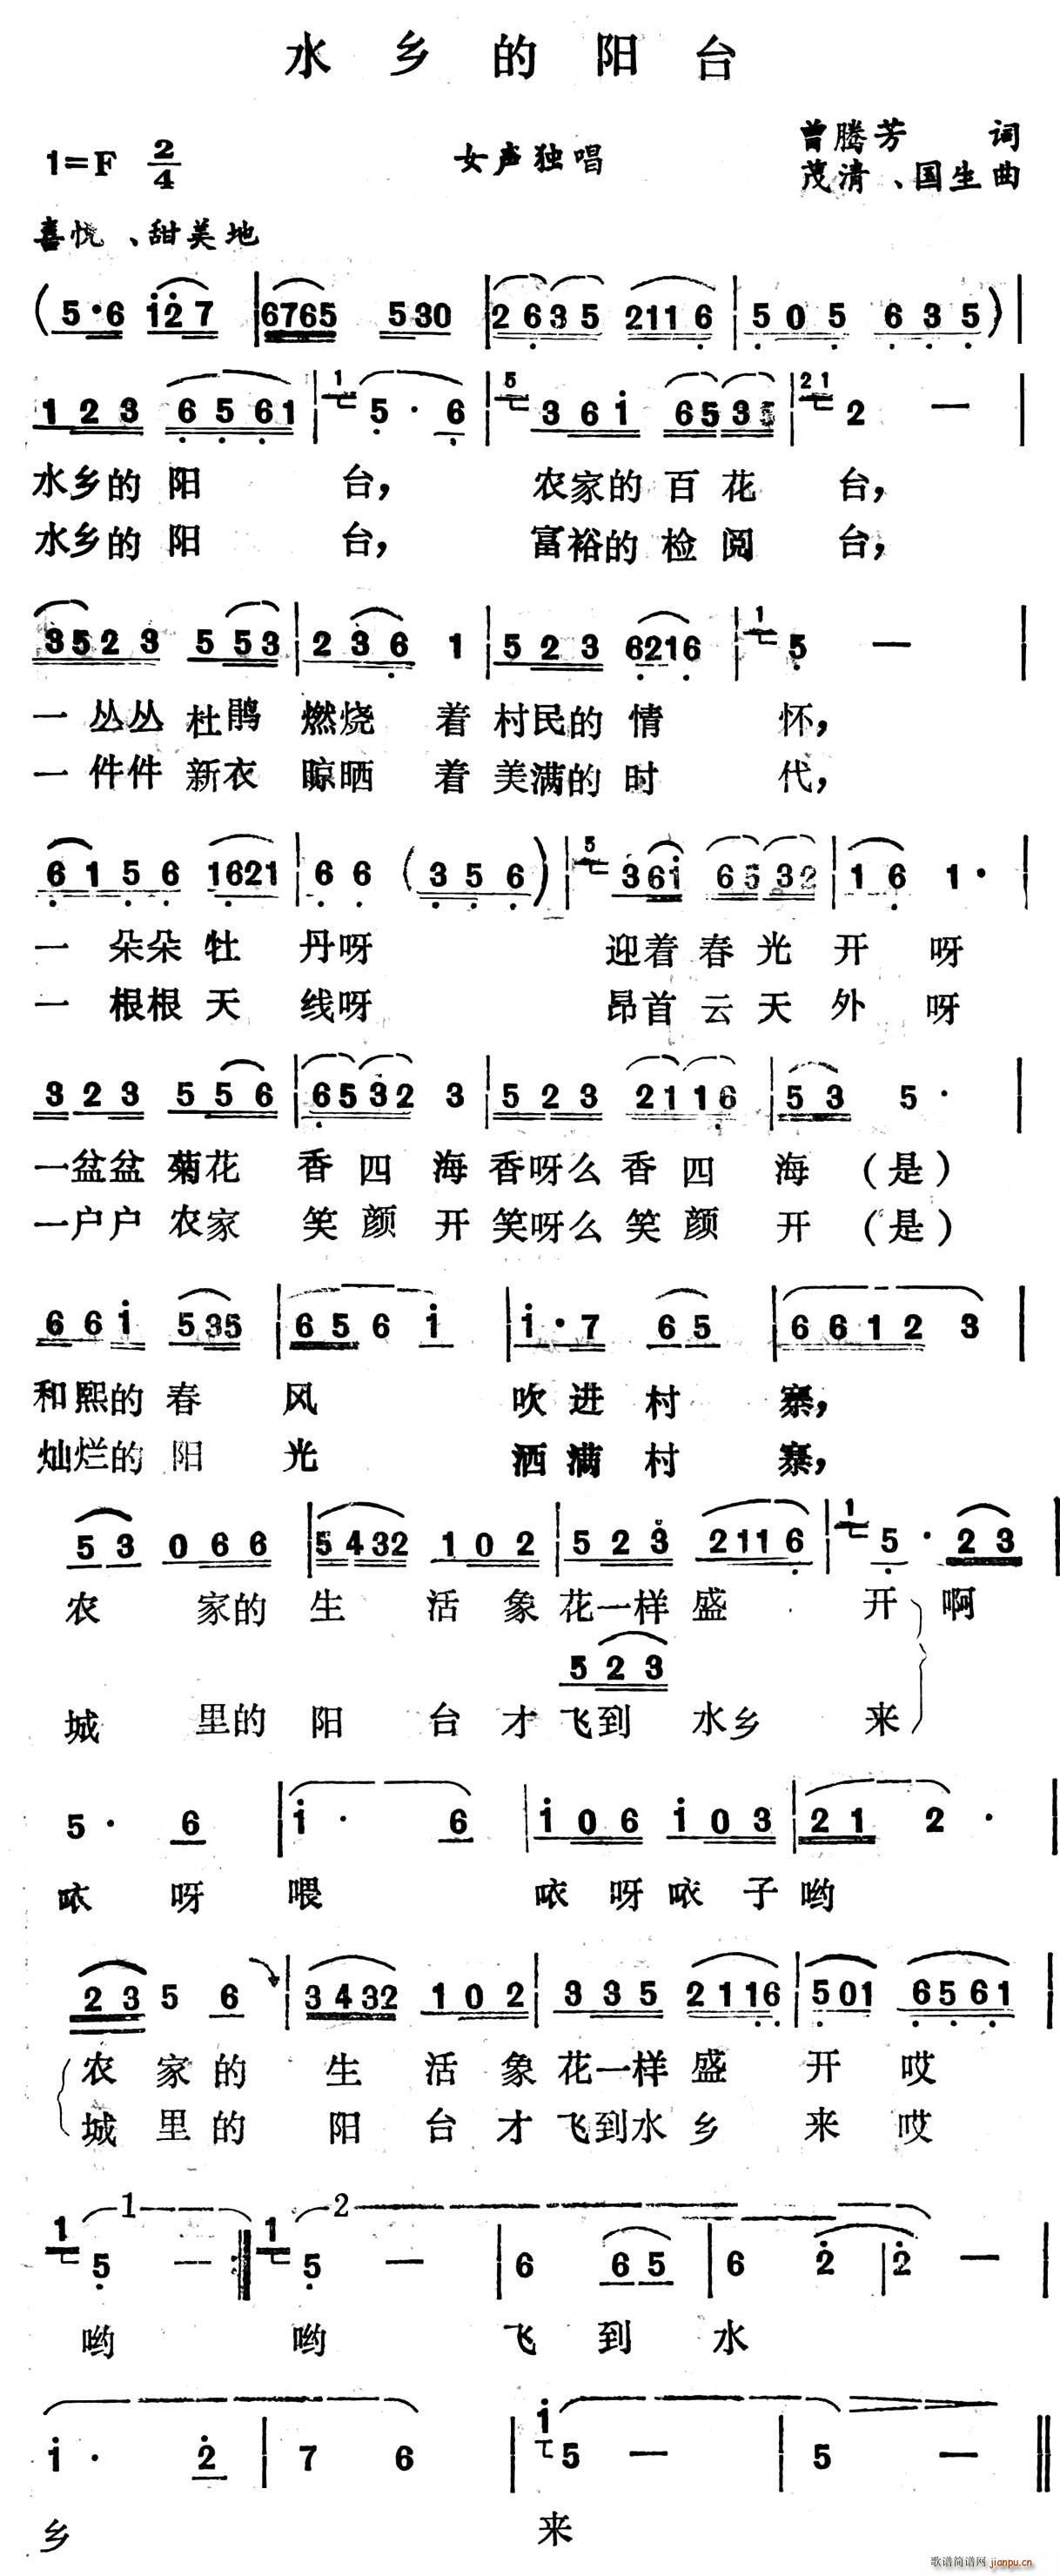 水乡的阳台
1=F 2/4 女声独唱 曾腾芳 词
茂清、国生曲
喜悦、甜美地
(5·6 i27 | 6765 530 | 2635 2116 | 505 635) |
123 6561 | 5·6 | 36i 6535 | 2 — |
水乡的阳台，农家的百花台，
水乡的阳台，富裕的检阅台，
3523 553 | 236 1 | 523 6216 | 5 — |
一丛丛杜鹃燃烧着村民的情怀，
一件件新衣晾晒着美满的时代，
6156 1621 | 66 (356) | 36i 6532 | 16 1· |
一朵朵牡丹呀迎着春光开呀
一根根天线呀昂首云天外呀
323 556 | 6532 3 | 523 2116 | 53 5· |
一盆盆菊花香四海香呀么香四海(是)
一户户农家笑颜开笑呀么笑颜开(是)
66i 535 | 656 i | i·7 65 | 6612 3 |
和熙的春风吹进村寨，
灿烂的阳光洒满村寨，
53 066 | 5432 102 | 523 2116 | 5·23 |
农家的生活象花一样盛开啊
523
城里的阳台才飞到水乡来
5·6 | i·6 | i06 i03 | 21 2· |
咴呀喂咴呀咴子哟
23 5 6 | 3432 102 | 335 2116 | 501 6561 |
农家的生活象花一样盛开哎
城里的阳台才飞到水乡来哎
1 2
5 — :| 5 — | 6 65 | 6 2 | 2 — |
哟哟飞到水
i·2 | 7 6 | 5 — | 5 — ||
乡来
歌谱简谱网 jianpu.cn